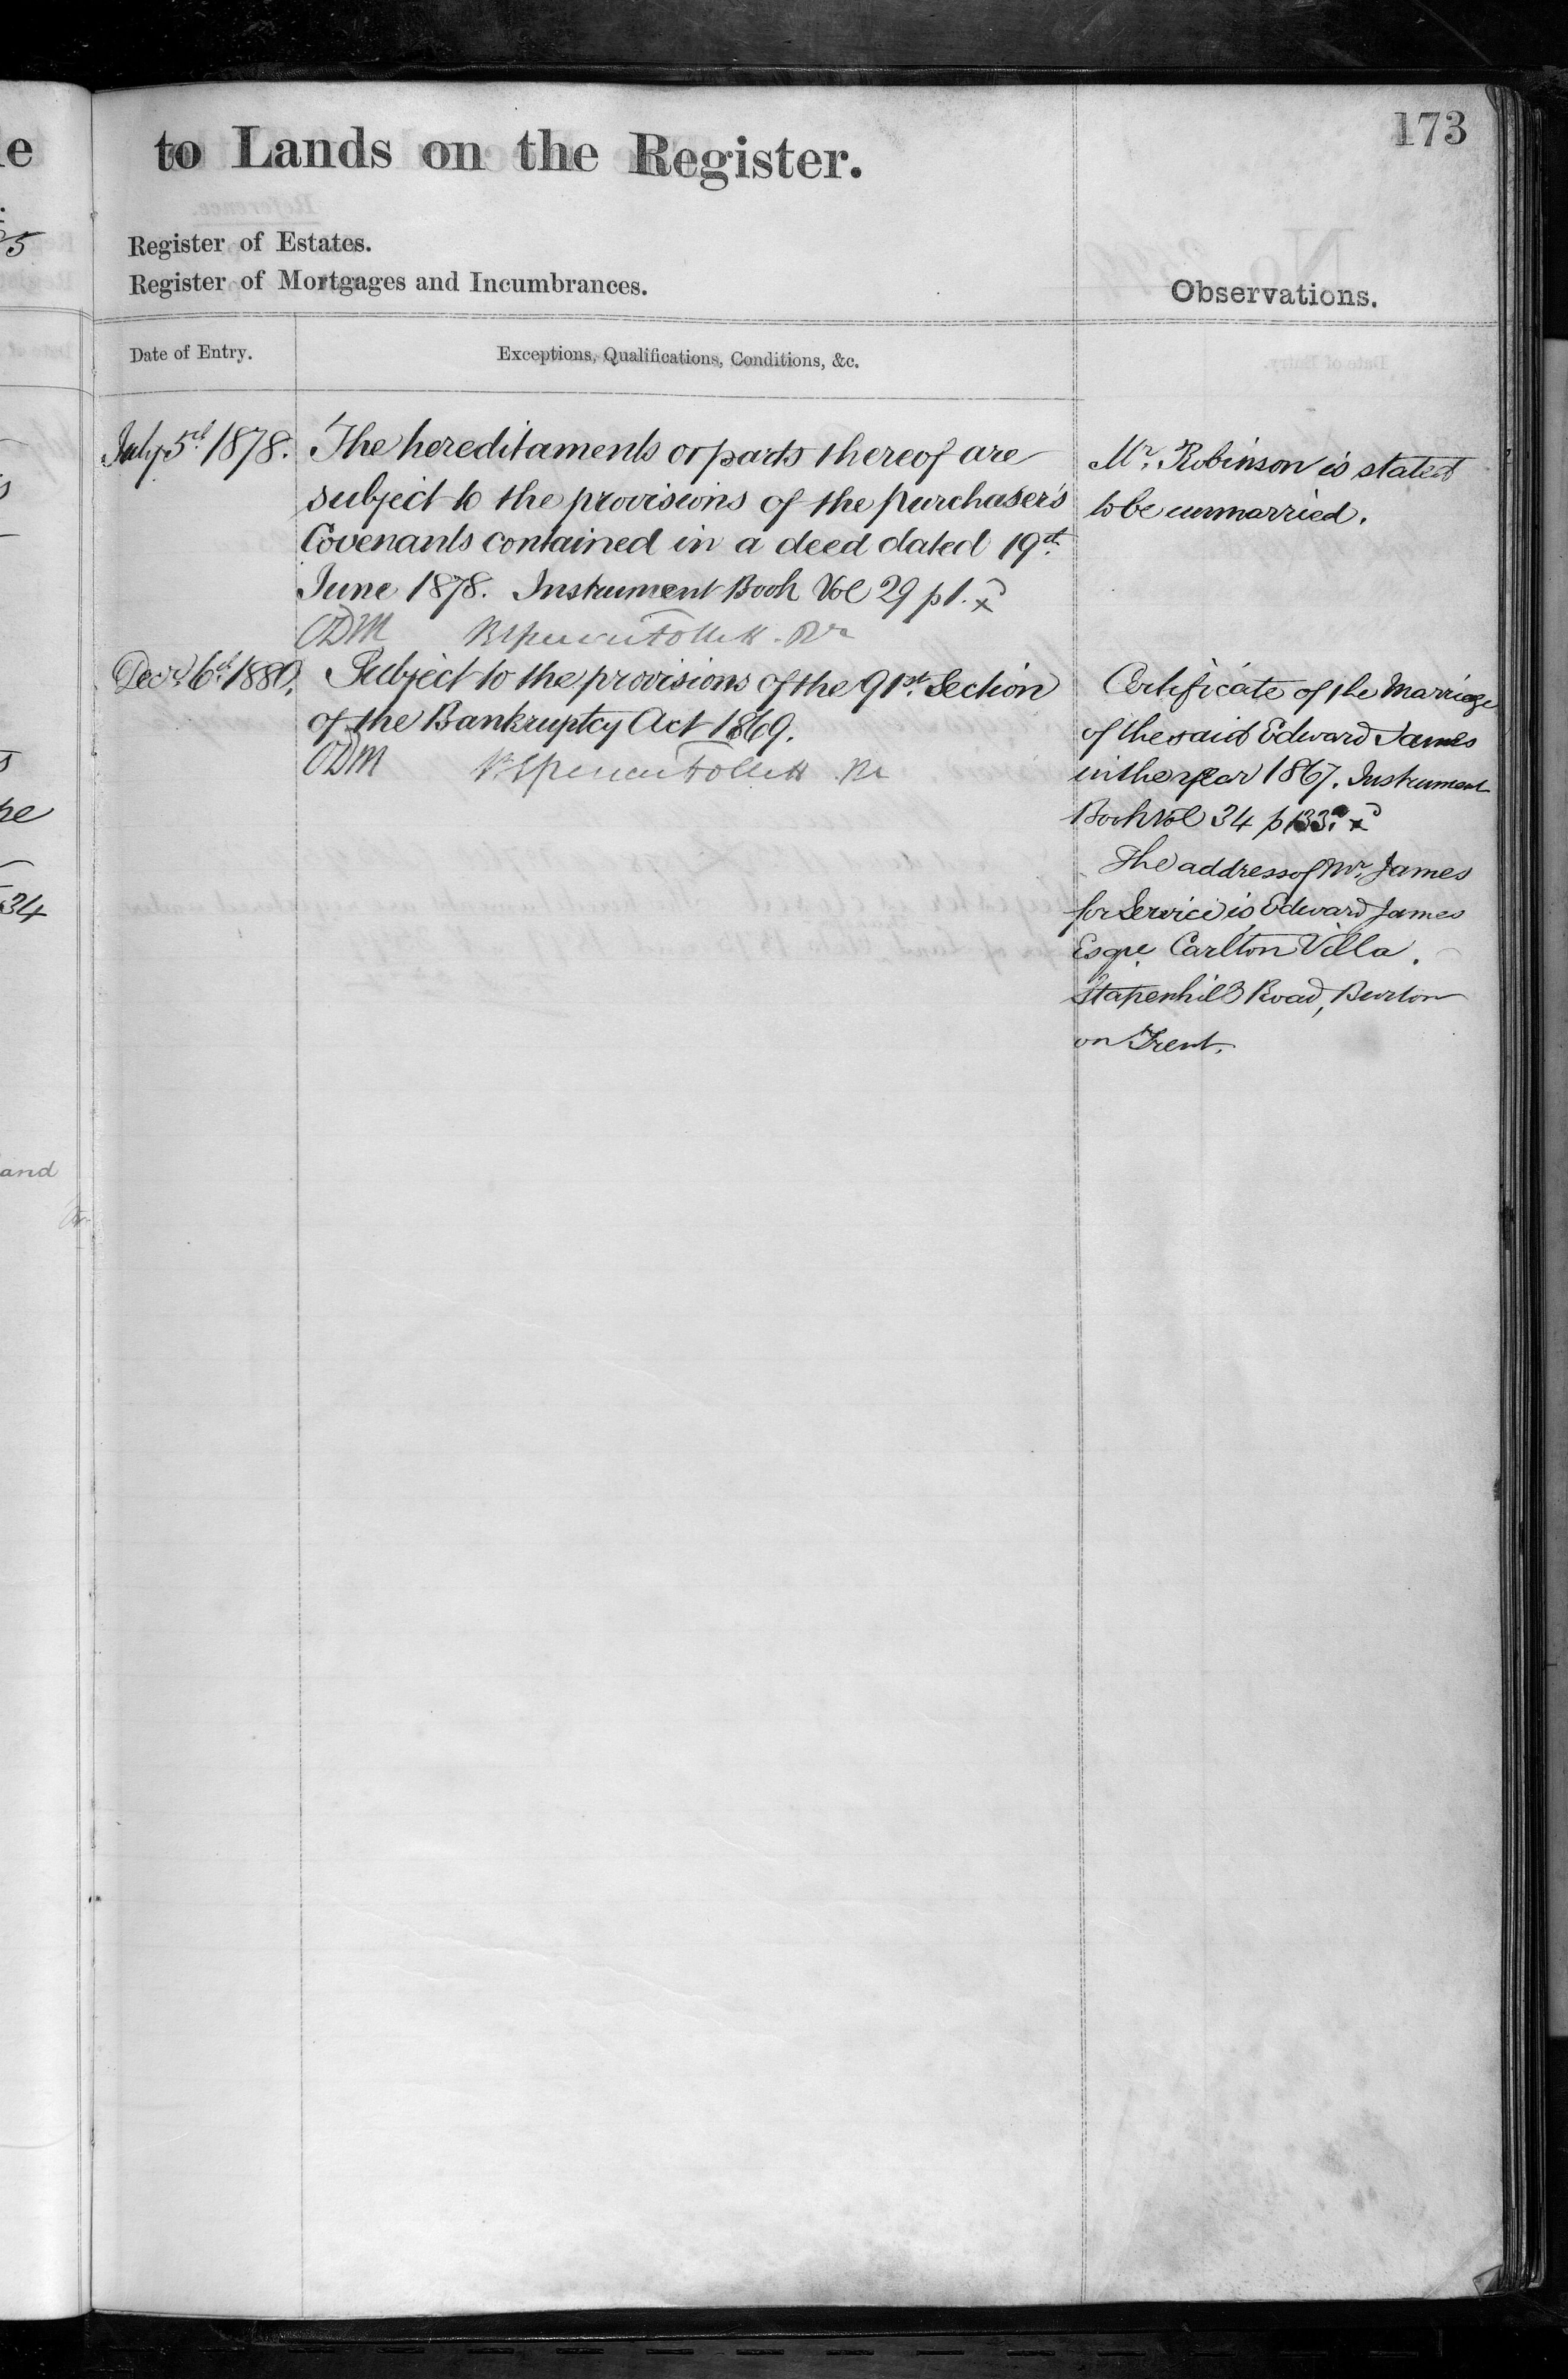 173
to Lands on the Register.
Register of Estates.
Register of Mortgages and Incumbrances.
Observations.
Date of Entry.
Exceptions, Qualifications, Conditions, &c.
July 5th 1878.
The hereditaments or parts thereof are
subject to the provisions of the purchaser's
Covenants contained in a deed dated 19th
June 1878. Instrument Book Vol 29 p 1. x
ODM
Mr. Robinson is stated
to be unmarried.
Decr. 6th 1880.
Subject to the provisions of the 91st Section
of the Bankruptcy Act 1869.
ODM
Certificate of the Marriage
of the said Edward James
in the year 1867. Instrument
Book Vol 34 p 133a x
The address of Mr. James
for Service is Edward James
Esqre Carlton Villa.
Stapenhill Road, Burton
on Trent.
le
5
pe
34
and